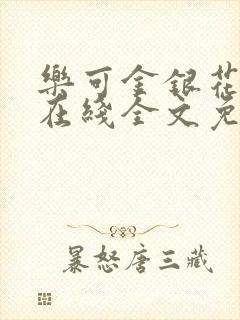 樂可金銀花
在綫全文免
暴怒唐三藏